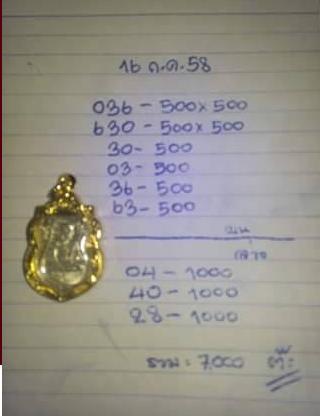 16 ต.ค.58
036 - 500x500
630 - 500x500
30 - 500
03 - 500
36 - 500
63 - 500
บน
ล่าง
04 - 1000
40 - 1000
28 - 1000
รวม = 7,000